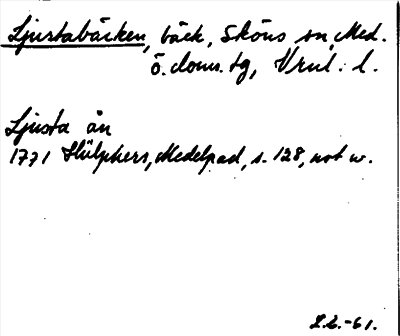 Ljustabäcken, bäck, Sköns sn, Med.
ö. doms. tg, Vrnl. l.
Ljusta ån
1771 Hülphers, Medelpad, s. 128, not w.
L.L.-61.